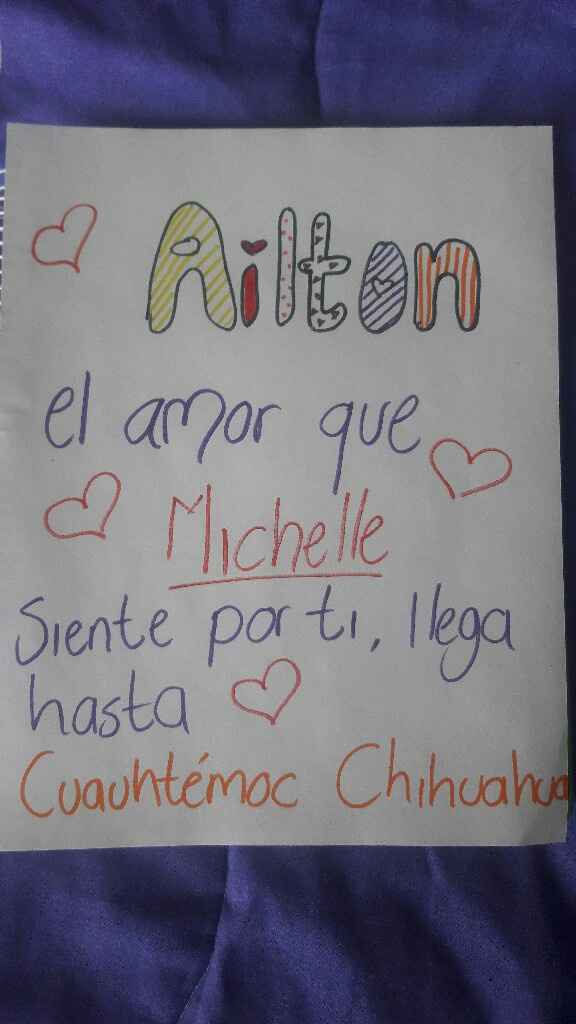 Ailton
el amor que
Michelle
Siente por ti, llega
hasta
Cuauhtémoc Chihuahua